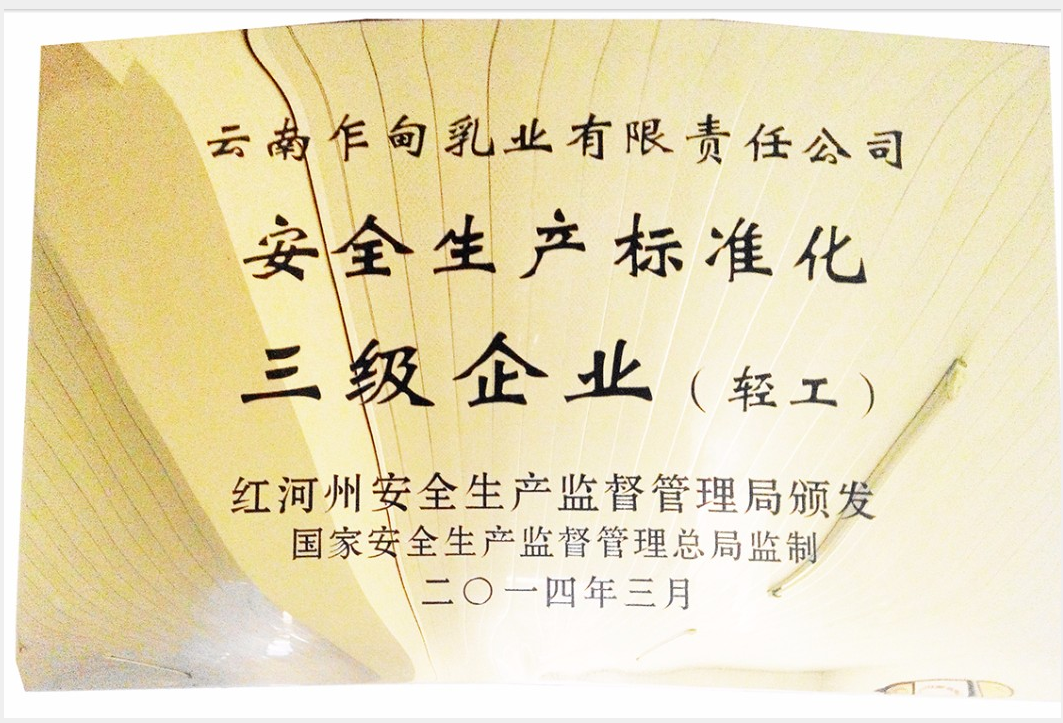 云南乍甸乳业有限责任公司
安全生产标准化
三级企业（轻工）
红河州安全生产监督管理局颁发
国家安全生产监督管理总局监制
二〇一四年三月